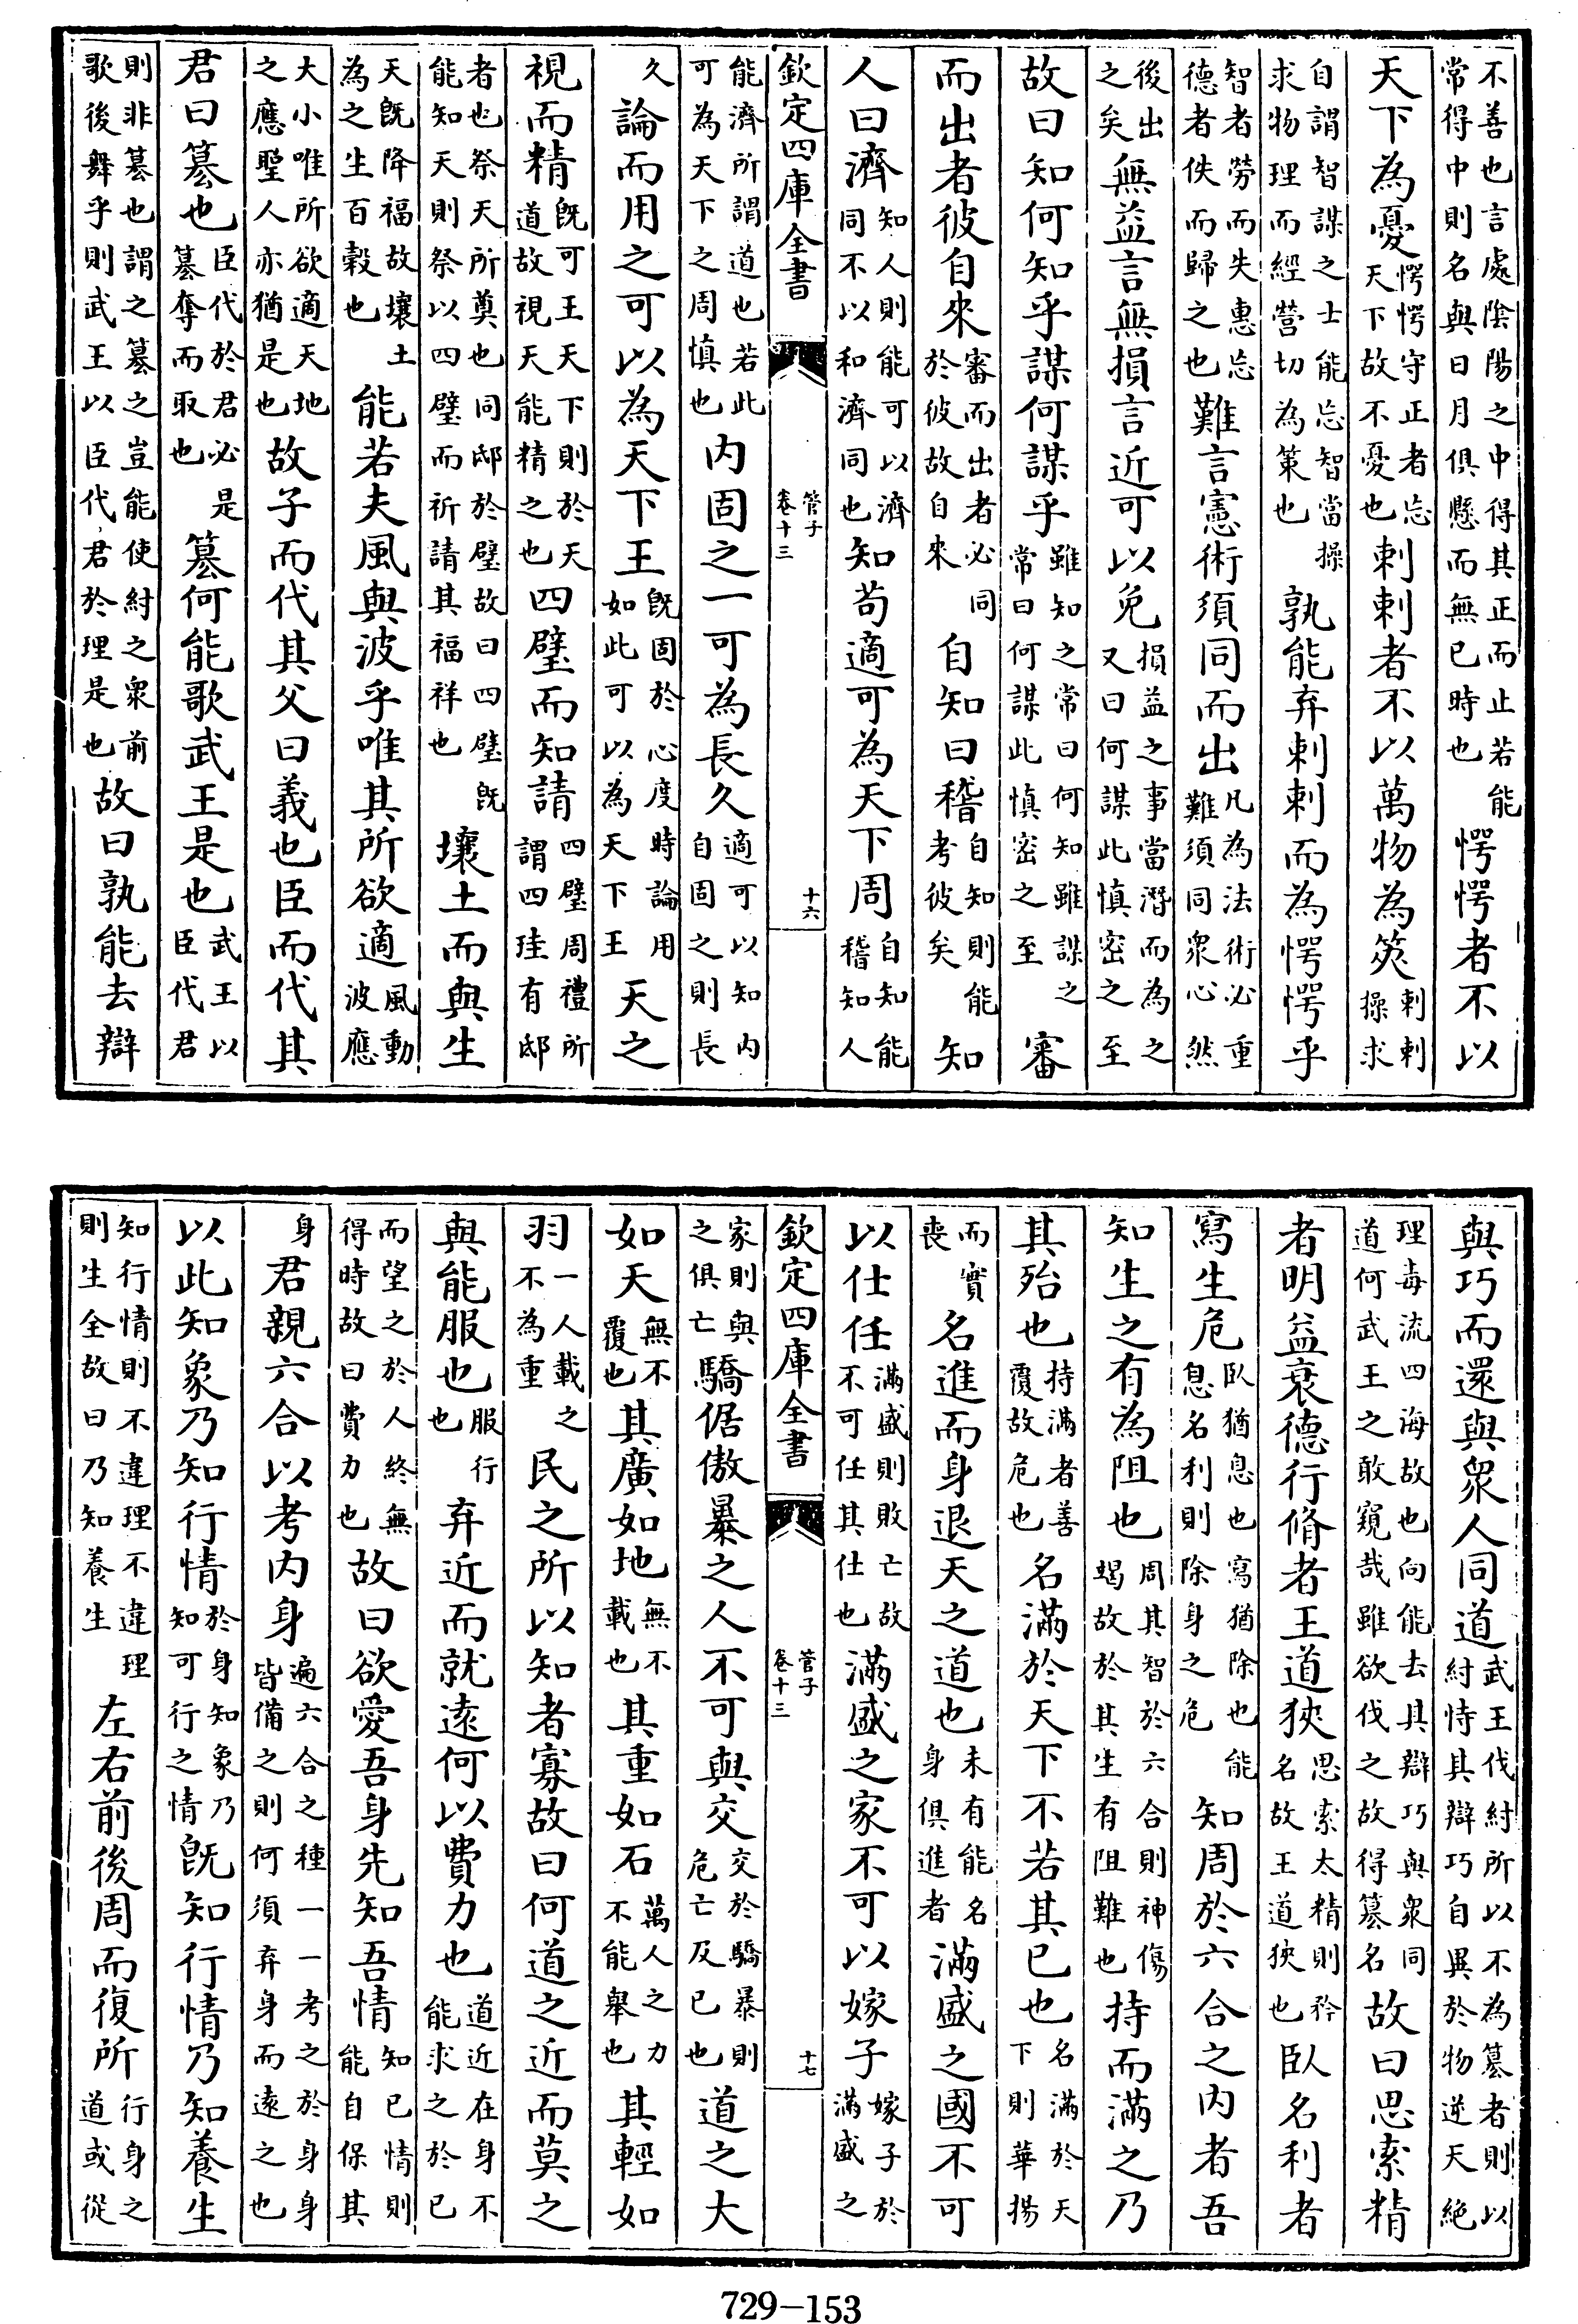 不善也言處陰陽之中得其正而止若能常得中則名與日月俱懸而無已時也愕愕者不以
天下為憂愕愕守正者忘天下故不憂也剌剌者不以萬物為筴剌剌操求
自謂智謀之士能忘智當操求物理而經營切為策也孰能弃剌剌而為愕愕乎
智者勞而失惠忘德者佚而歸之也難言憲術須同而出凡為法術必重難須同眾心然
後出之矣無益言無損言近可以免損益之事當潛而為之又曰何謀此慎密之至
故曰知何知乎謀何謀乎雖知之常曰何知雖謀之常曰何謀此慎密之至審
而出者彼自來審而出者必同於彼故自來自知曰稽自知則能考彼矣知
人曰濟知人則能可以濟同不以和濟同也知苟適可為天下周自知能稽知人
欽定四庫全書 管子卷十三 十六
能濟所謂道也若此可為天下之周慎也内固之一可為長久適可以知内自固之則長
久論而用之可以為天下王既固於心度時論用如此可以為天下王天之
視而精既可王天下則於天道故視天能精之也四璧而知請四璧周禮所謂四珪有邸
者也祭天所奠也同邸於璧故曰四璧既能知天則祭以四璧而祈請其福祥也壤土而與生
天既降福故壤土為之生百穀也能若夫風與波乎唯其所欲適風動波應
大小唯所欲適天地之應聖人亦猶是也故子而代其父曰義也臣而代其
君曰簒也臣代於君必是簒奪而取也簒何能歌武王是也武王以臣代君
則非簒也謂之簒之豈能使紂之衆前歌後舞乎則武王以臣代君於理是也故曰孰能去辯
與巧而還與衆人同道武王伐紂所以不為簒者則以紂恃其辯巧自異於物逆天絕
理毒流四海故也向能去其辯巧與衆同道何武王之敢窺哉雖欲伐之故得簒名故曰思索精
者明益衰德行脩者王道狹思索太精則矜名故王道狹也臥名利者
寫生危臥猶息也寫猶除也能息名利則除身之危知周於六合之内者吾
知生之有為阻也周其智於六合則神傷蝎故於其生有阻難也持而滿之乃
其殆也持滿者善覆故危也名滿於天下不若其已也名滿於天下則華揚
而實喪名進而身退天之道也未有能名身俱進者滿盛之國不可
以仕任滿盛則敗亡故不可任其仕也滿盛之家不可以嫁子嫁子於滿盛之
欽定四庫全書 管子卷十三 十七
家則與之俱亡驕倨傲暴之人不可與交交於驕暴則危亡及已也道之大
如天無不覆也其廣如地無不載也其重如石萬人之力不能舉也其輕如
羽一人載之不為重民之所以知者寡故曰何道之近而莫之
與能服也服行也弃近而就遠何以費力也道近在身不能求之於已
而望之於人終無得時故曰費力也故曰欲愛吾身先知吾情知已情則能自保其
身君親六合以考内身遍六合之種一一考之於身身皆備之則何須弃身而遠之也
以此知象乃知行情於身知象乃知可行之情既知行情乃知養生
知行情則不違理不違理則生全故曰乃知養生左右前後周而復所行身之道或從
729-153